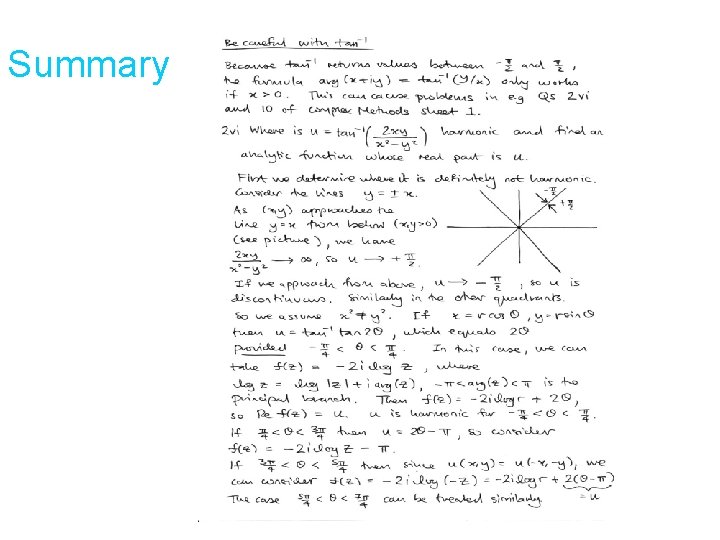 Summary
Be careful with tan⁻¹
Because tan⁻¹ returns values between -π/2 and π/2,
the formula arg(x+iy) = tan⁻¹(y/x) only works
if x>0. This can cause problems in e.g Qs 2vi
and 10 of Complex Methods sheet 1.
2vi Where is u = tan⁻¹(2xy/(x²-y²)) harmonic and find an
analytic function whose real part is u.
First we determine where it is definitely not harmonic.
Consider the lines y = ± x.
-π/2
+π/2
As (x,y) approaches the
line y=x from below (x,y>0)
(see picture), we have
2xy/(x²-y²) → ∞, so u → +π/2.
If we approach from above, u → -π/2, so u is
discontinuous. Similarly in the other quadrants.
So we assume x²≠y². If x = r cos θ, y = r sin θ
then u = tan⁻¹ tan 2θ, which equals 2θ
provided -π/4 < θ < π/4. In this case, we can
take f(z) = -2i log z, where
log z = log |z| + i arg(z), -π<arg(z)<π is the
principal branch. Then f(z) = -2i log r + 2θ,
so Re f(z) = u. u is harmonic for -π/4 < θ < π/4.
If π/4 < θ < 3π/4 then u = 2θ-π, so consider
f(z) = -2i log z - π.
If 3π/4 < θ < 5π/4 then since u(x,y) = u(-x,-y), we
can consider f(z) = -2i log(-z) = -2i log r + 2(θ-π)
= u
The case 5π/4 < θ < 7π/4 can be treated similarly